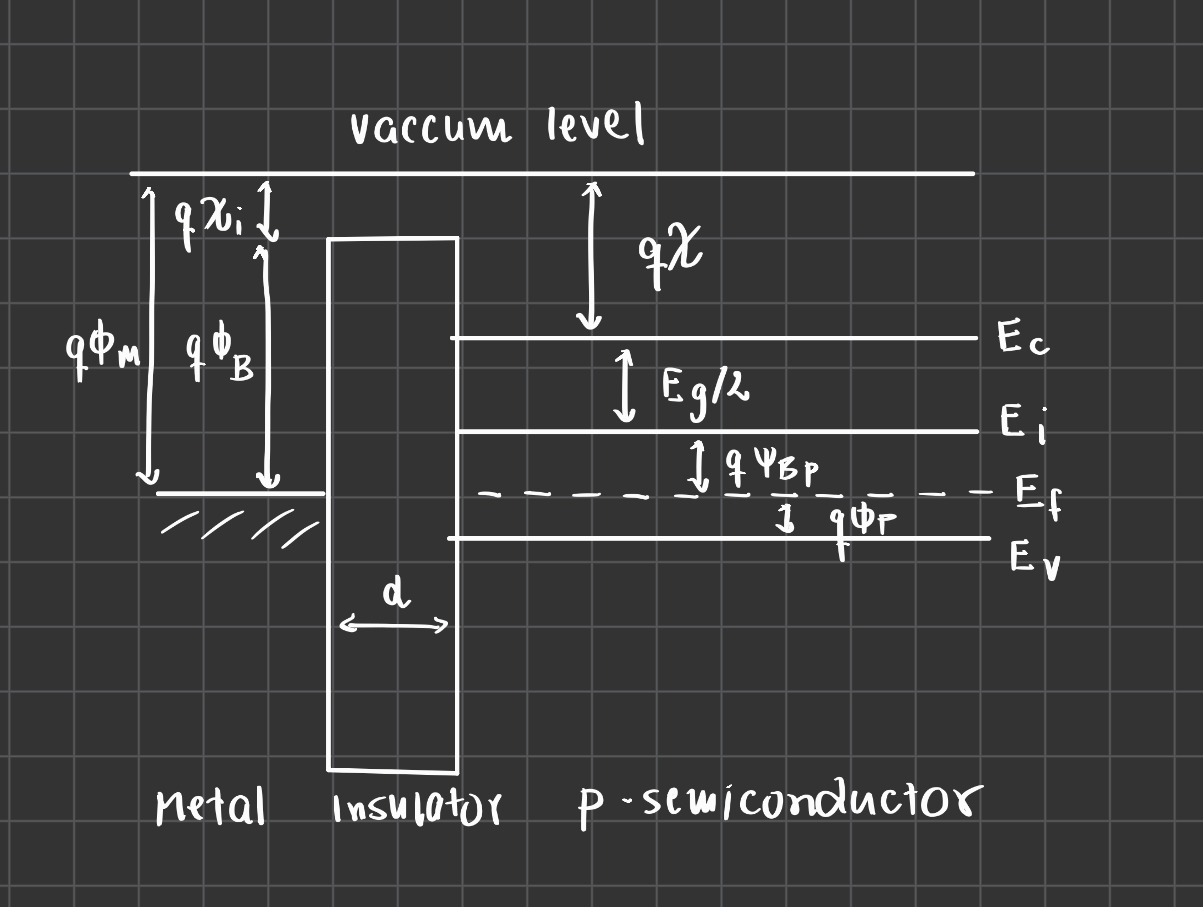 vaccum level
qχᵢ
qχ
qϕ_M
qϕ_B
E_c
E_g/2
E_i
qψ_Bp
E_f
qϕ_P
E_v
d
Metal
insulator
p-semiconductor